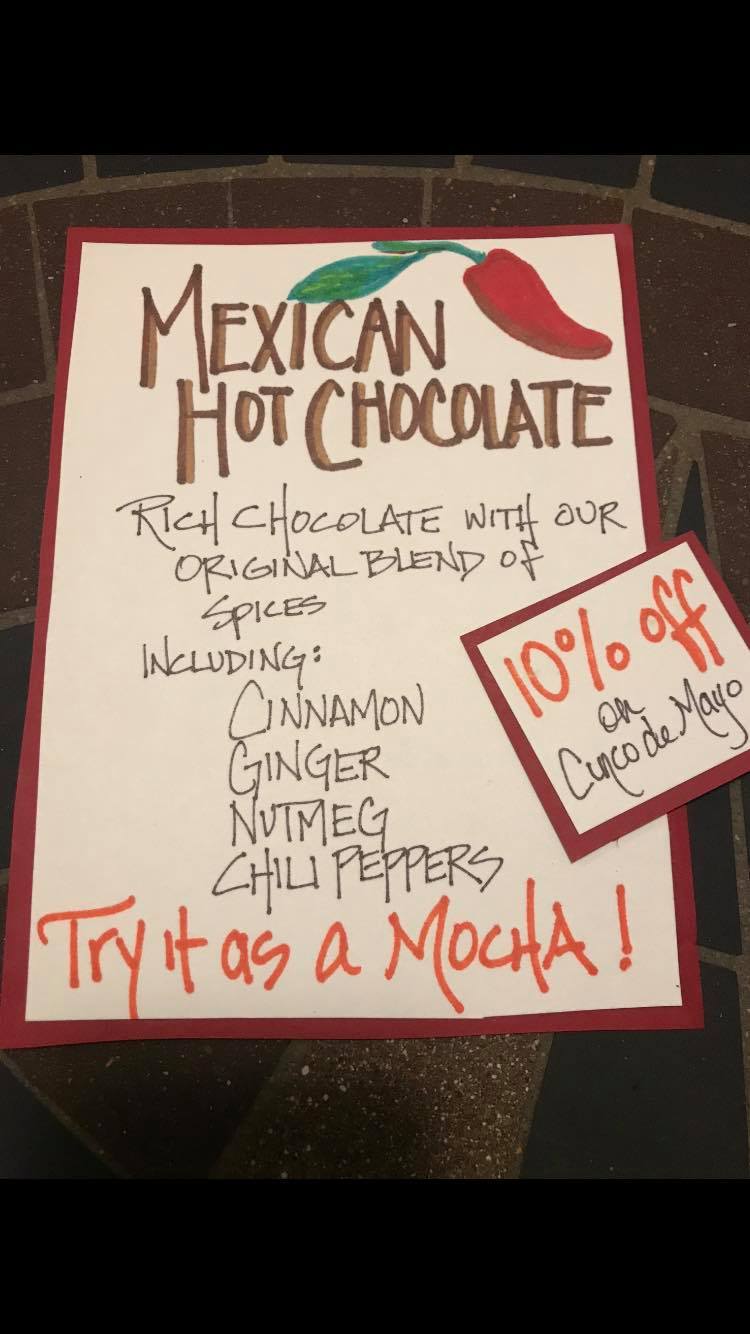 MEXICAN
HOT CHOCOLATE
RICH CHOCOLATE WITH OUR
ORIGINAL BLEND OF
SPICES
INCLUDING:
CINNAMON
GINGER
NUTMEG
CHILI PEPPERS
Try it as a MOCHA!
10% off
on
Cinco de Mayo